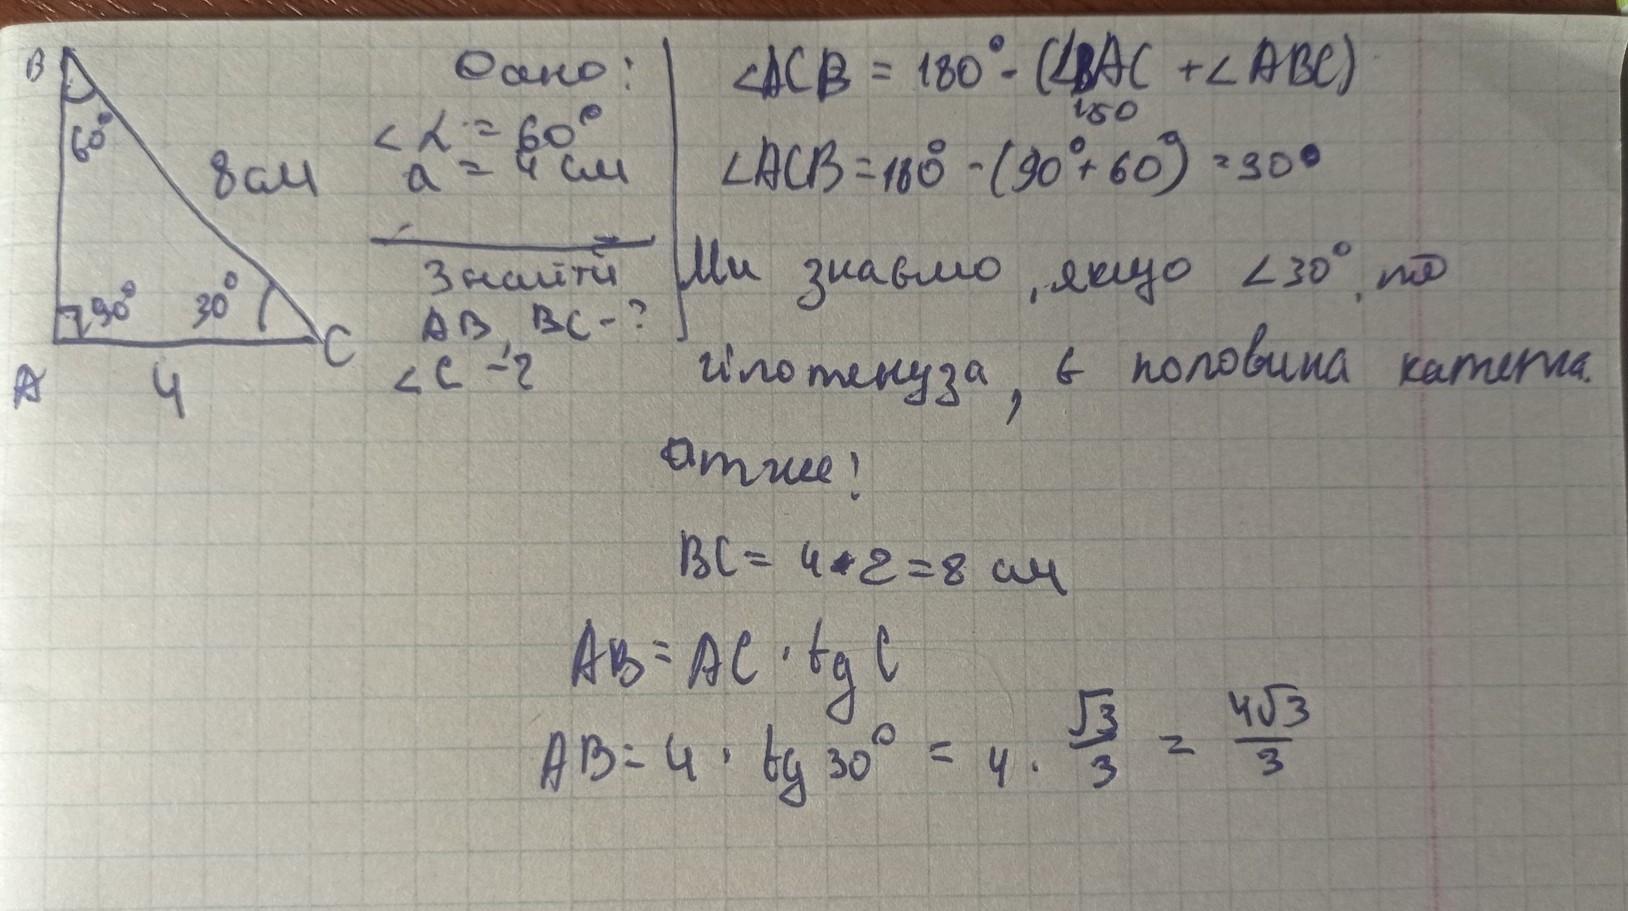 B
60°
8 см
90°
30°
A
4
C
Дано:
∠α = 60°
a = 4 см
Знайти
AB, BC - ?
∠C - ?
∠ACB = 180° - (∠BAC + ∠ABC)
150
∠ACB = 180° - (90° + 60°) = 30°
Ми знаємо, якщо ∠30°, то
гіпотенуза, є половина катета.
Отже!
BC = 4 * 2 = 8 см
AB = AC · tg C
AB = 4 · tg 30° = 4 · √3/3 = 4√3/3